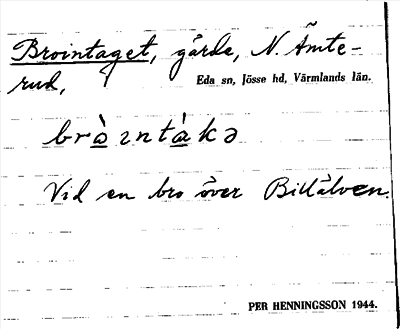 Brointaget, gärde, N. Ämte-
rud,
Eda sn, Jösse hd, Värmlands län.
brὰɪntὰkə
Vid en bro över Billälven.
PER HENNINGSSON 1944.